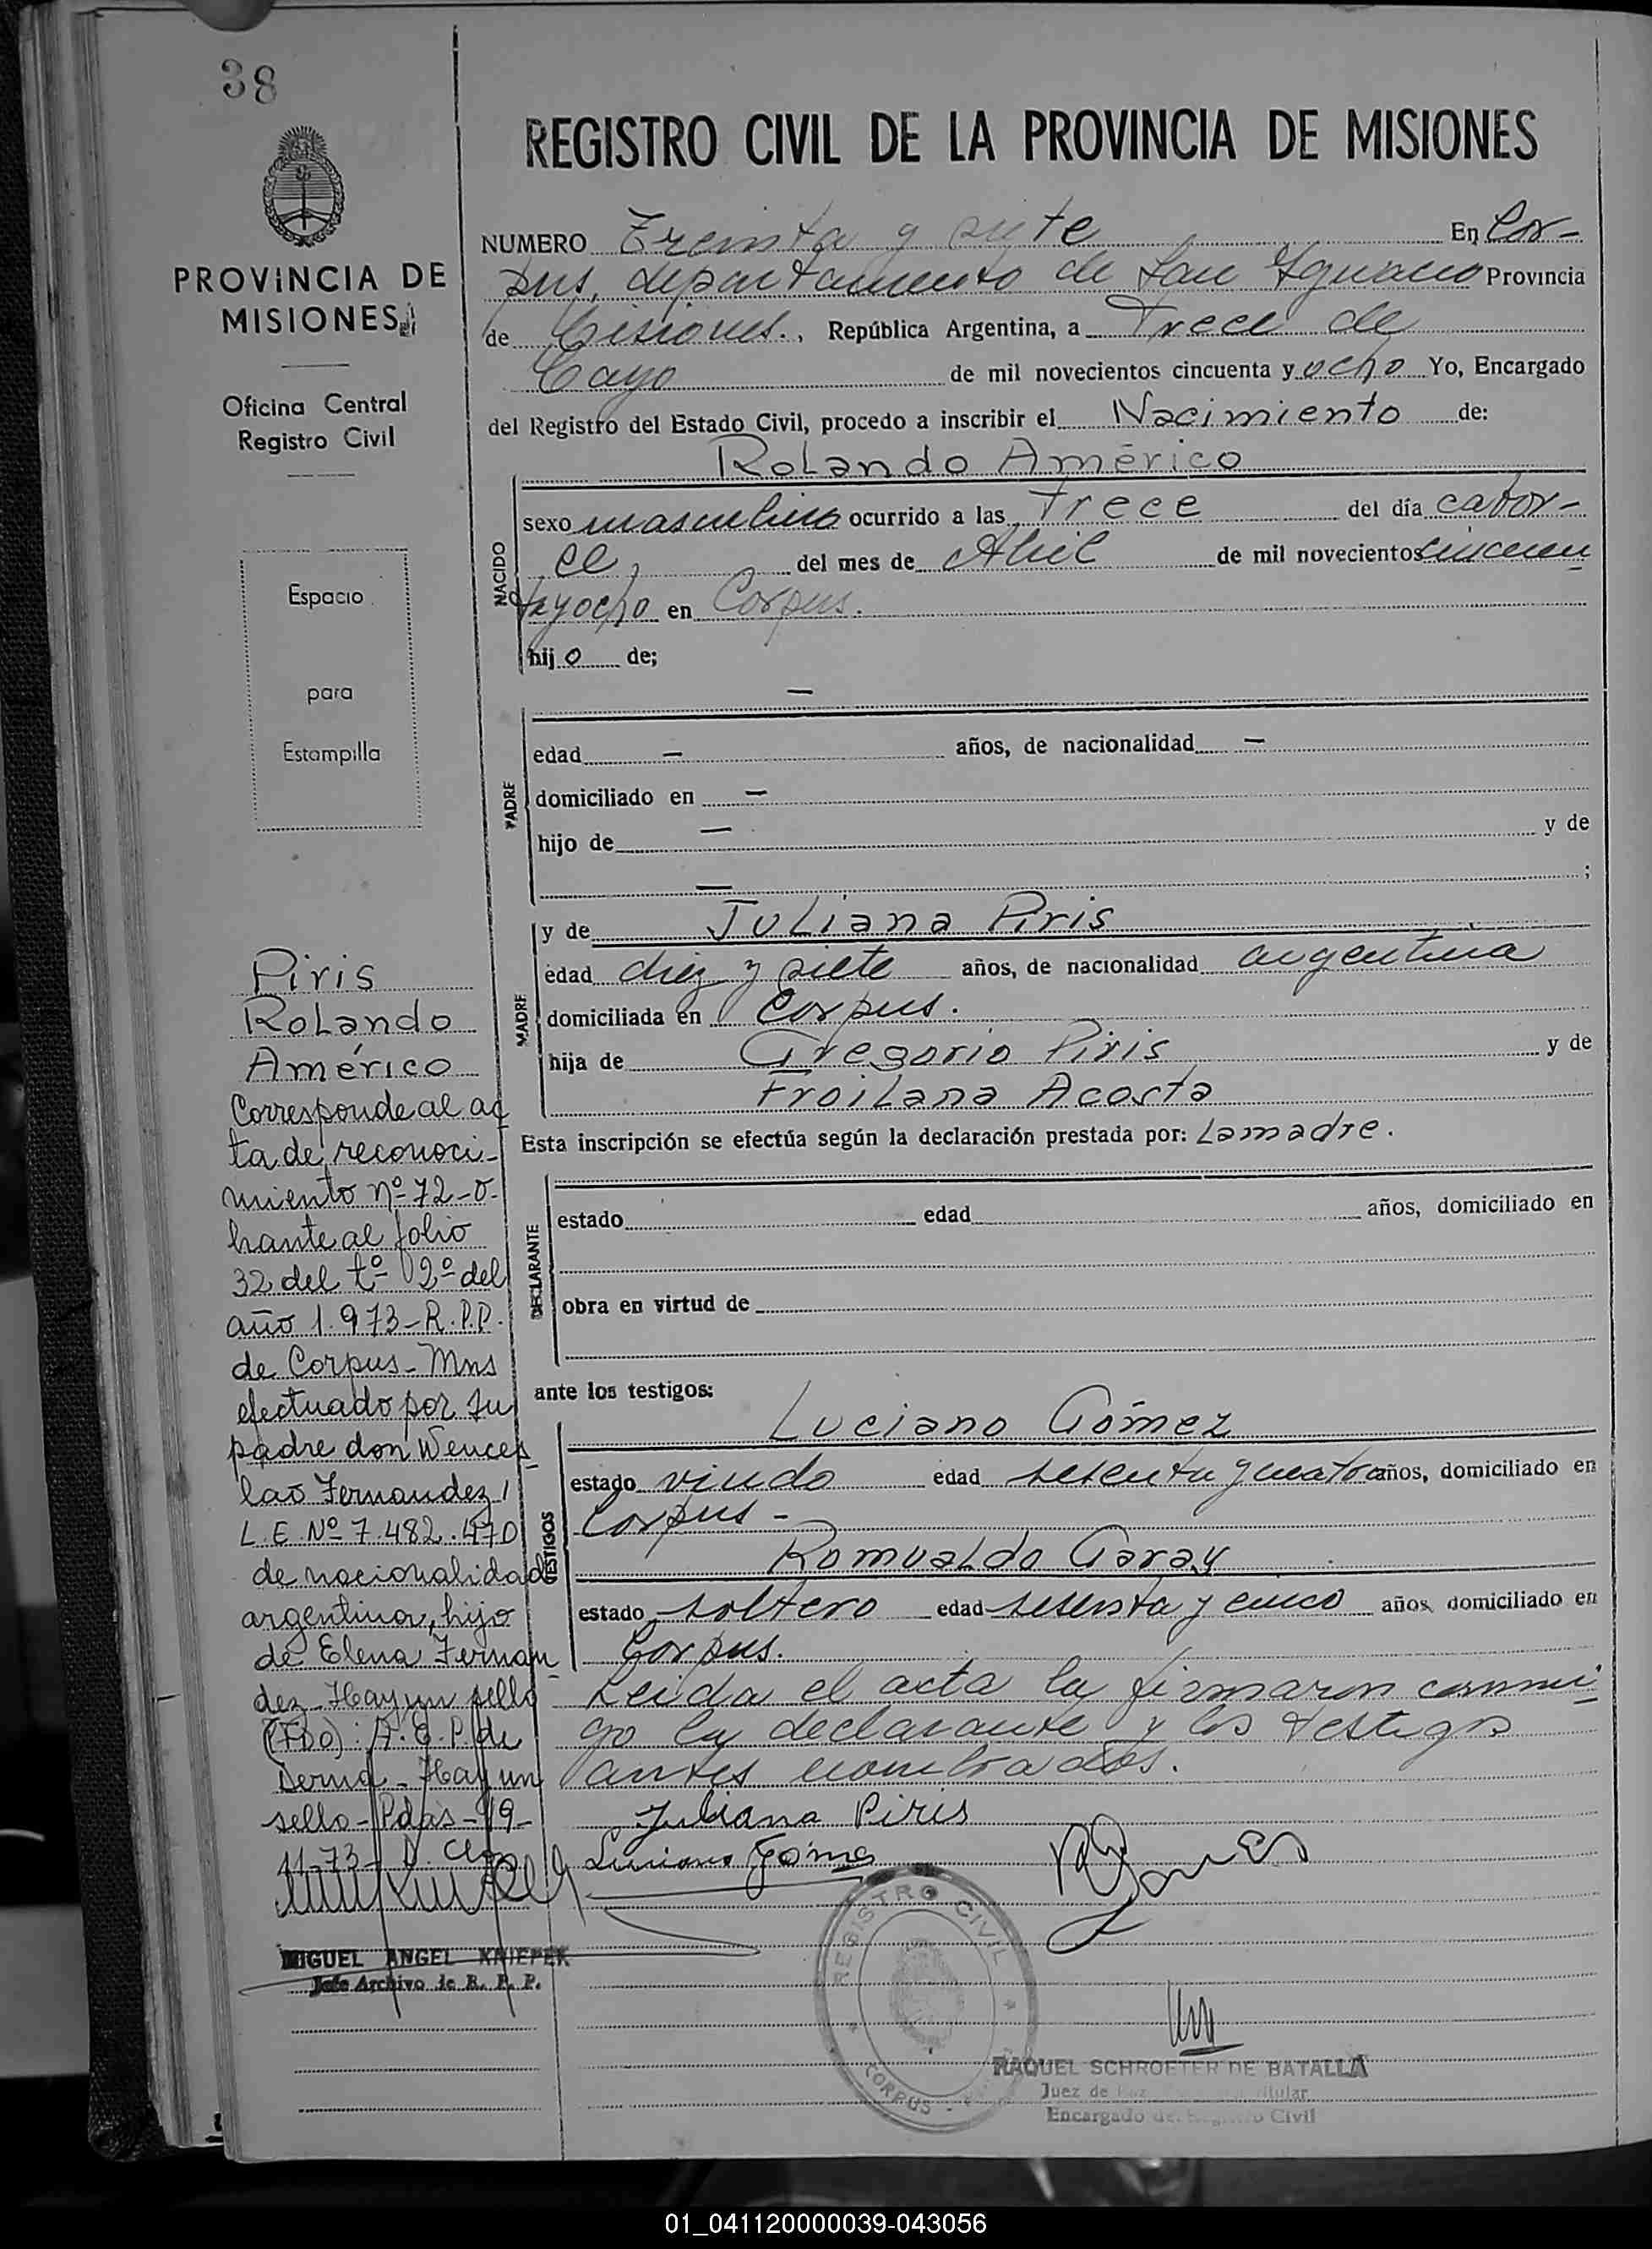 38
PROVINCIA DE
MISIONES
Oficina Central
Registro Civil
Espacio
para
Estampilla
REGISTRO CIVIL DE LA PROVINCIA DE MISIONES
NUMERO Treinta y siete En Cor-
pus, departamento de San Ygnacio Provincia
de Misiones., República Argentina, a Trece de
Mayo de mil novecientos cincuenta y ocho Yo, Encargado
del Registro del Estado Civil, procedo a inscribir el Nacimiento de:
Rolando Américo
NACIDO
sexo masculino ocurrido a las trece del día cator-
ce, del mes de Abril de mil novecientos cincuen
ta y ocho en Corpus.
hijo de;
—
PADRE
edad — años, de nacionalidad —
domiciliado en —
hijo de — y de
— ;
y de Juliana Piris
MADRE
edad diez y siete años, de nacionalidad argentina
domiciliada en Corpus.
hija de Gregorio Piris y de
Froilana Acosta
Esta inscripción se efectúa según la declaración prestada por: La madre.
DECLARANTE
estado edad años, domiciliado en
obra en virtud de
ante los testigos:
Luciano Gómez
TESTIGOS
estado viudo edad sesenta y cuatro años, domiciliado en
Corpus -
Romualdo Garay
estado soltero edad sesenta y cinco años domiciliado en
Corpus.
Leida el acta la firmaron conmi
go la declarante y los testigos
antes nombrados.
Juliana Piris
Luciano Gómez
Piris
Rolando
Américo
Corresponde al ac
ta de reconoci-
miento nº 72-o-
brante al folio
32 del tº 2º del
año 1.973-R.P.P.
de Corpus-Mns
efectuado por su
padre don Wences
lao Fernandez
L.E. Nº 7.482.470
de nacionalidad
argentina, hijo
de Elena Fernan
dez-Hay un sello
(FDO): A.E.P. de
Serna-Hay un
sello-Pdas-19-
11-73-
MIGUEL ANGEL KNIEPEK
Jefe Archivo de R. P. P.
REGISTRO CIVIL
CORPUS
RAQUEL SCHROETER DE BATALLA
Juez de Paz Titular
Encargado del Registro Civil
01_041120000039-043056